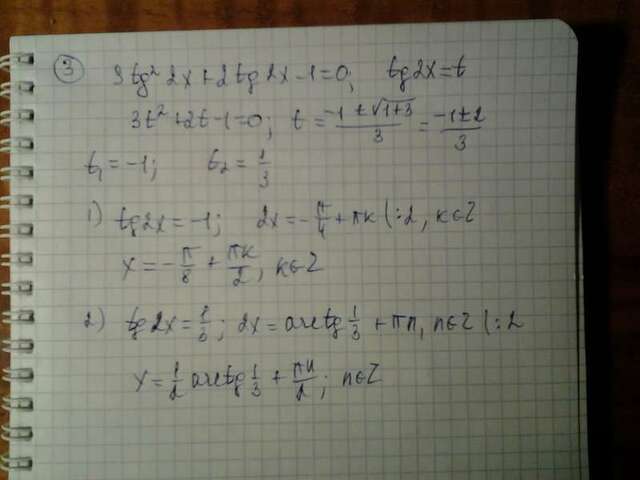 ③ 3tg² 2x + 2tg 2x - 1 = 0; tg2x = t
3t² + 2t - 1 = 0; t = (-1 ± √(1+3))/3 = (-1 ± 2)/3
t₁ = -1; t₂ = 1/3
1) tg2x = -1; 2x = -π/4 + πk (:2, k∈Z
x = -π/8 + πk/2, k∈Z
2) tg2x = 1/3; 2x = arctg 1/3 + πn, n∈Z (:2
x = 1/2 arctg 1/3 + πn/2; n∈Z